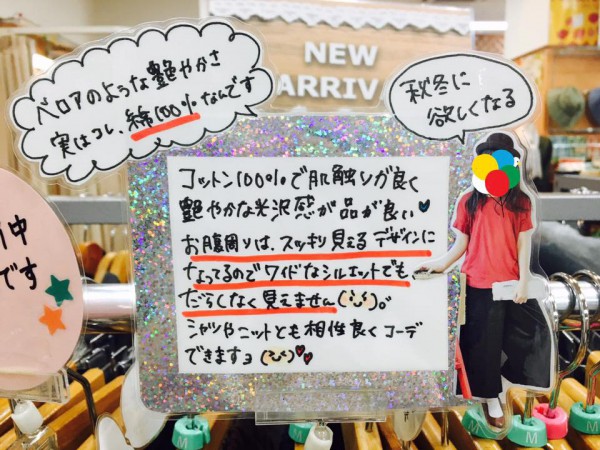 NEW
ARRIVAL
ベロアのような艶やかさ
実はコレ、綿100%なんです
秋冬に
欲しくなる
コットン100%で肌触りが良く
艶やかな光沢感が品が良い♥
お腹周りは、スッキリ見えるデザインに
なってるのでワイドなシルエットでも、
だらしなく見えません。
シャツやニットとも相性良くコーデ
できますヨ♥♥
中
です
M
M
M
M